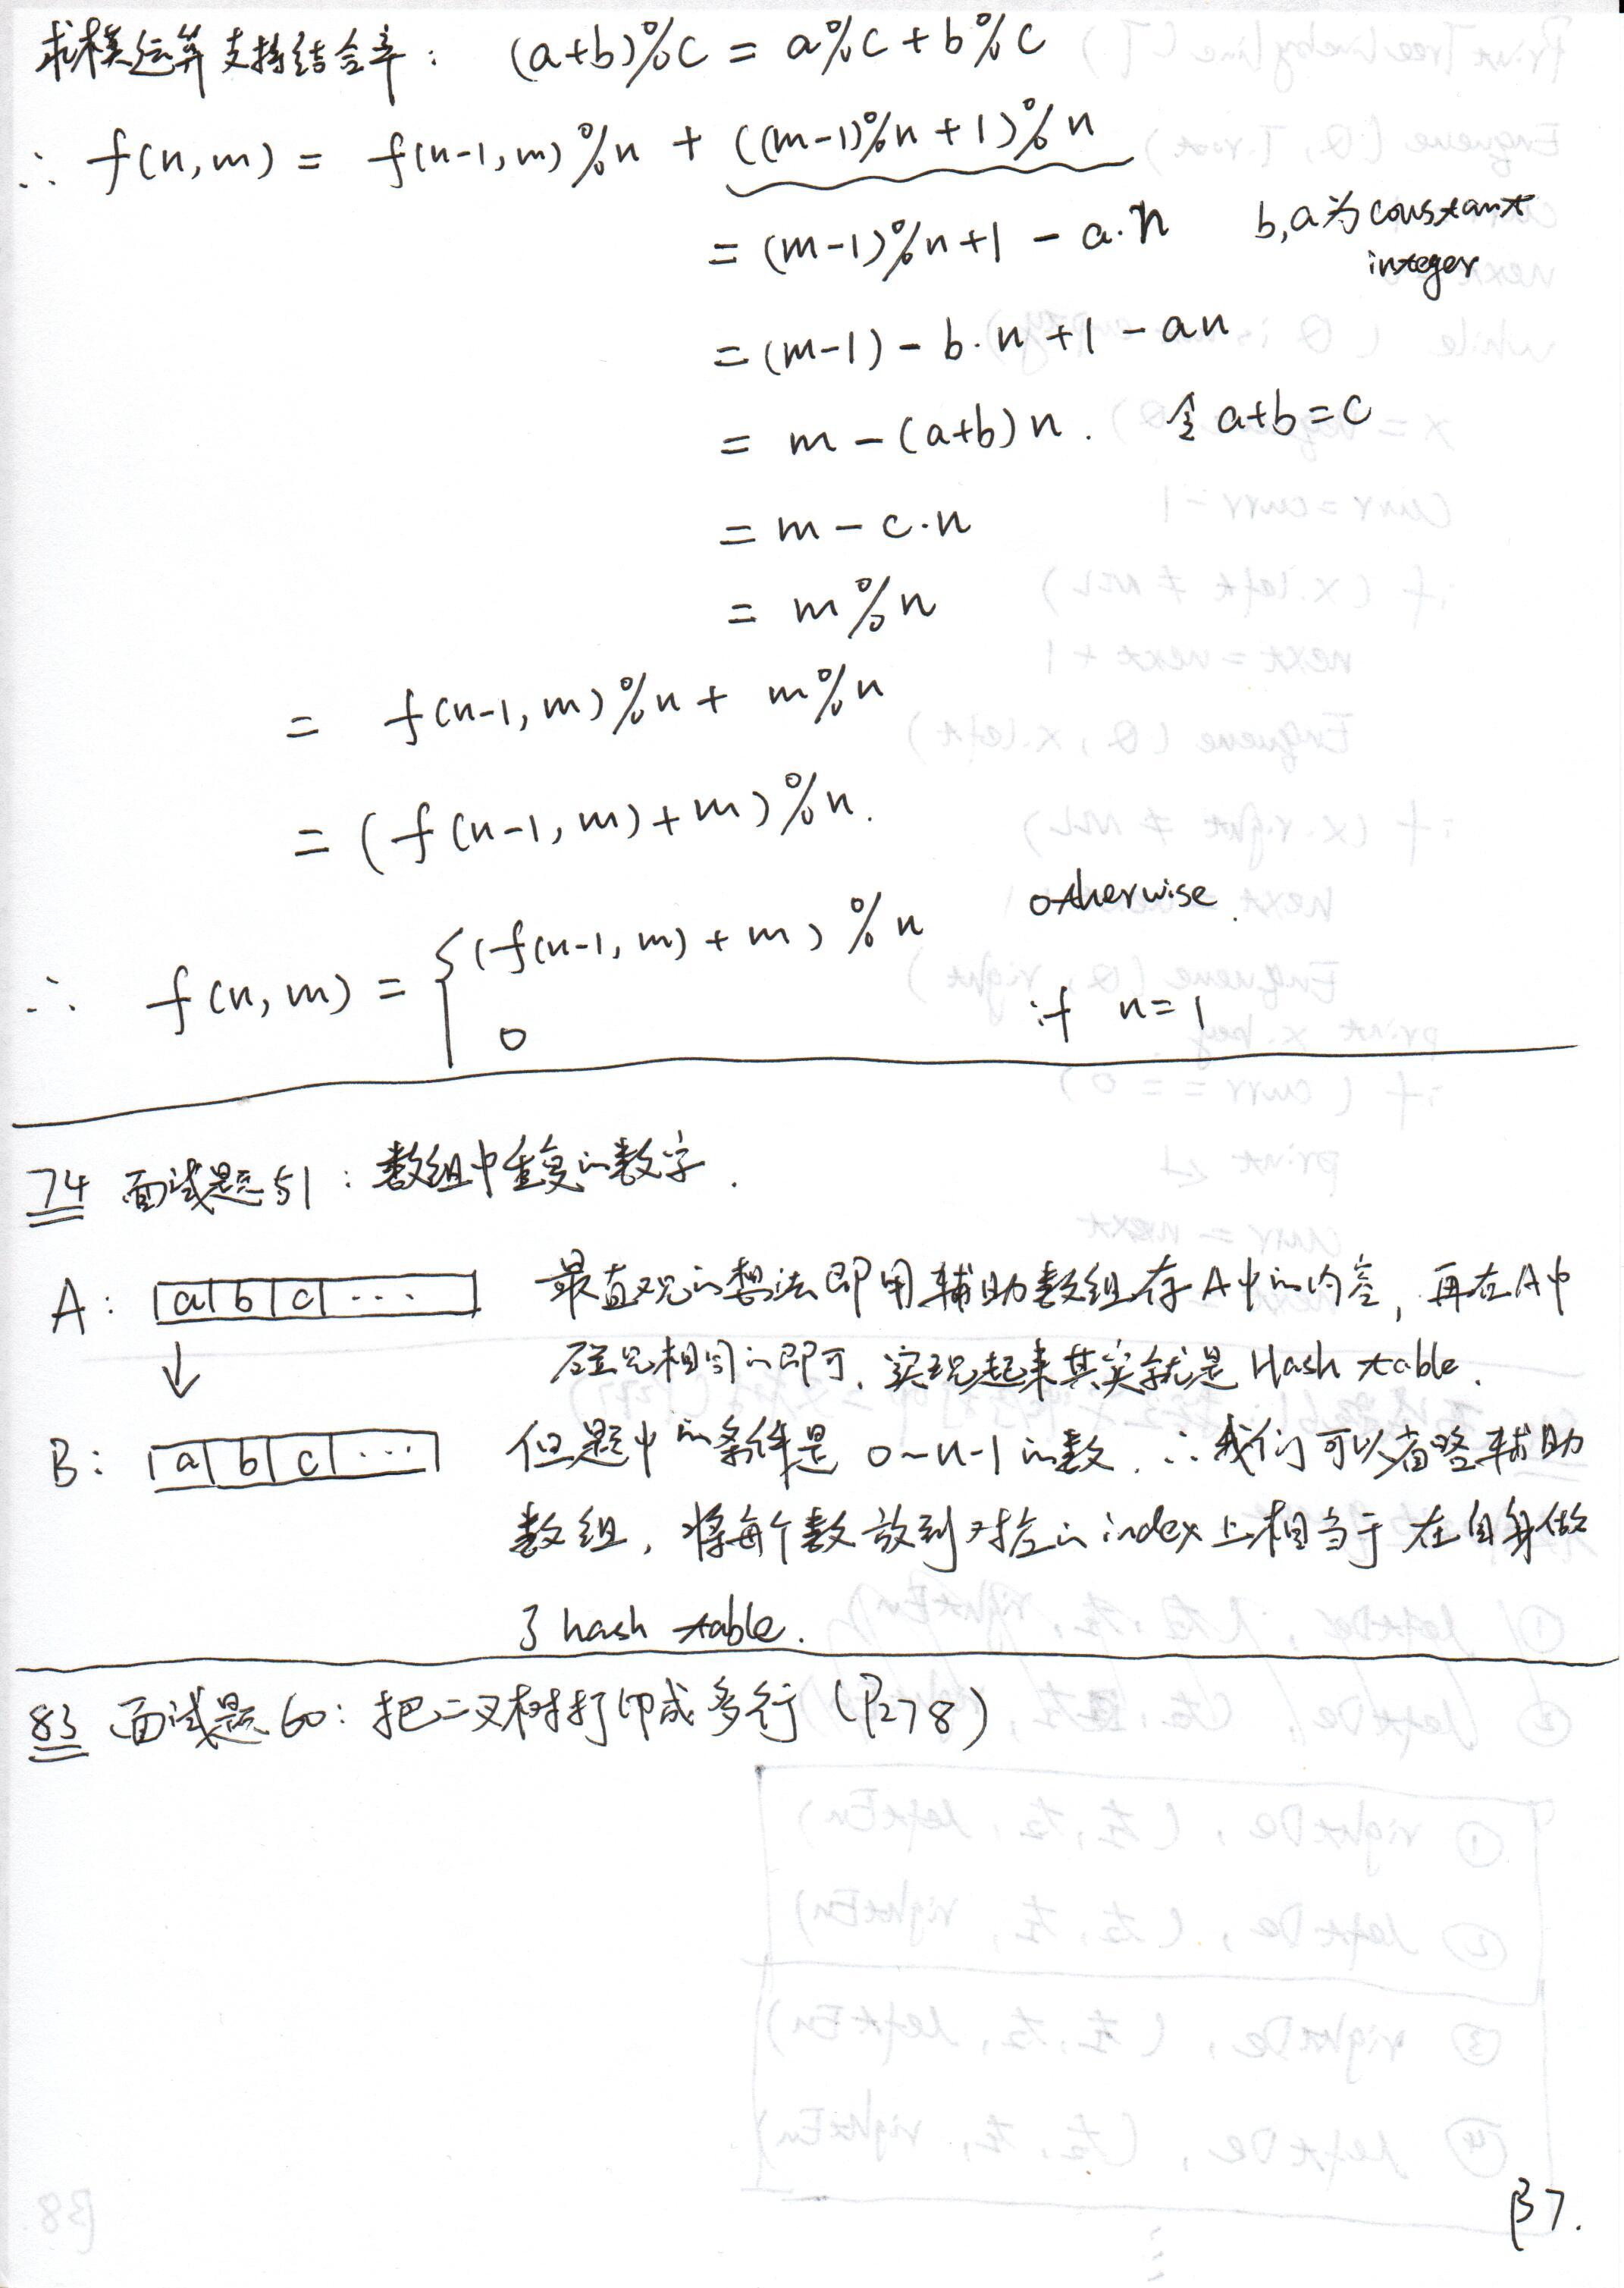 求模运算支持结合率： (a+b)%c = a%c + b%c
∴ f(n,m) = f(n-1,m)%n + ((m-1)%n+1)%n
= (m-1)%n+1 - a·n b,a为constant
integer
= (m-1) - b·n +1 - an
= m - (a+b)n. 令 a+b=c
= m - c·n
= m%n
= f(n-1,m)%n + m%n
= (f(n-1,m)+m)%n.
∴ f(n,m) = { (f(n-1,m)+m)%n otherwise.
0 if n=1
74 面试题51：数组中重复的数字.
A: a b c ... 最直观的想法即用辅助数组存A中的内容，再在A中
↓ 碰见相同的即可，实现起来其实就是Hash table.
B: a b c ... 但题中的条件是 0~n-1的数. ∴我们可以省略辅助
数组，将每个数放到对应的index上相当于在自身做
了hash table.
83 面试题60：把二叉树打印成多行 (P278)
P37.